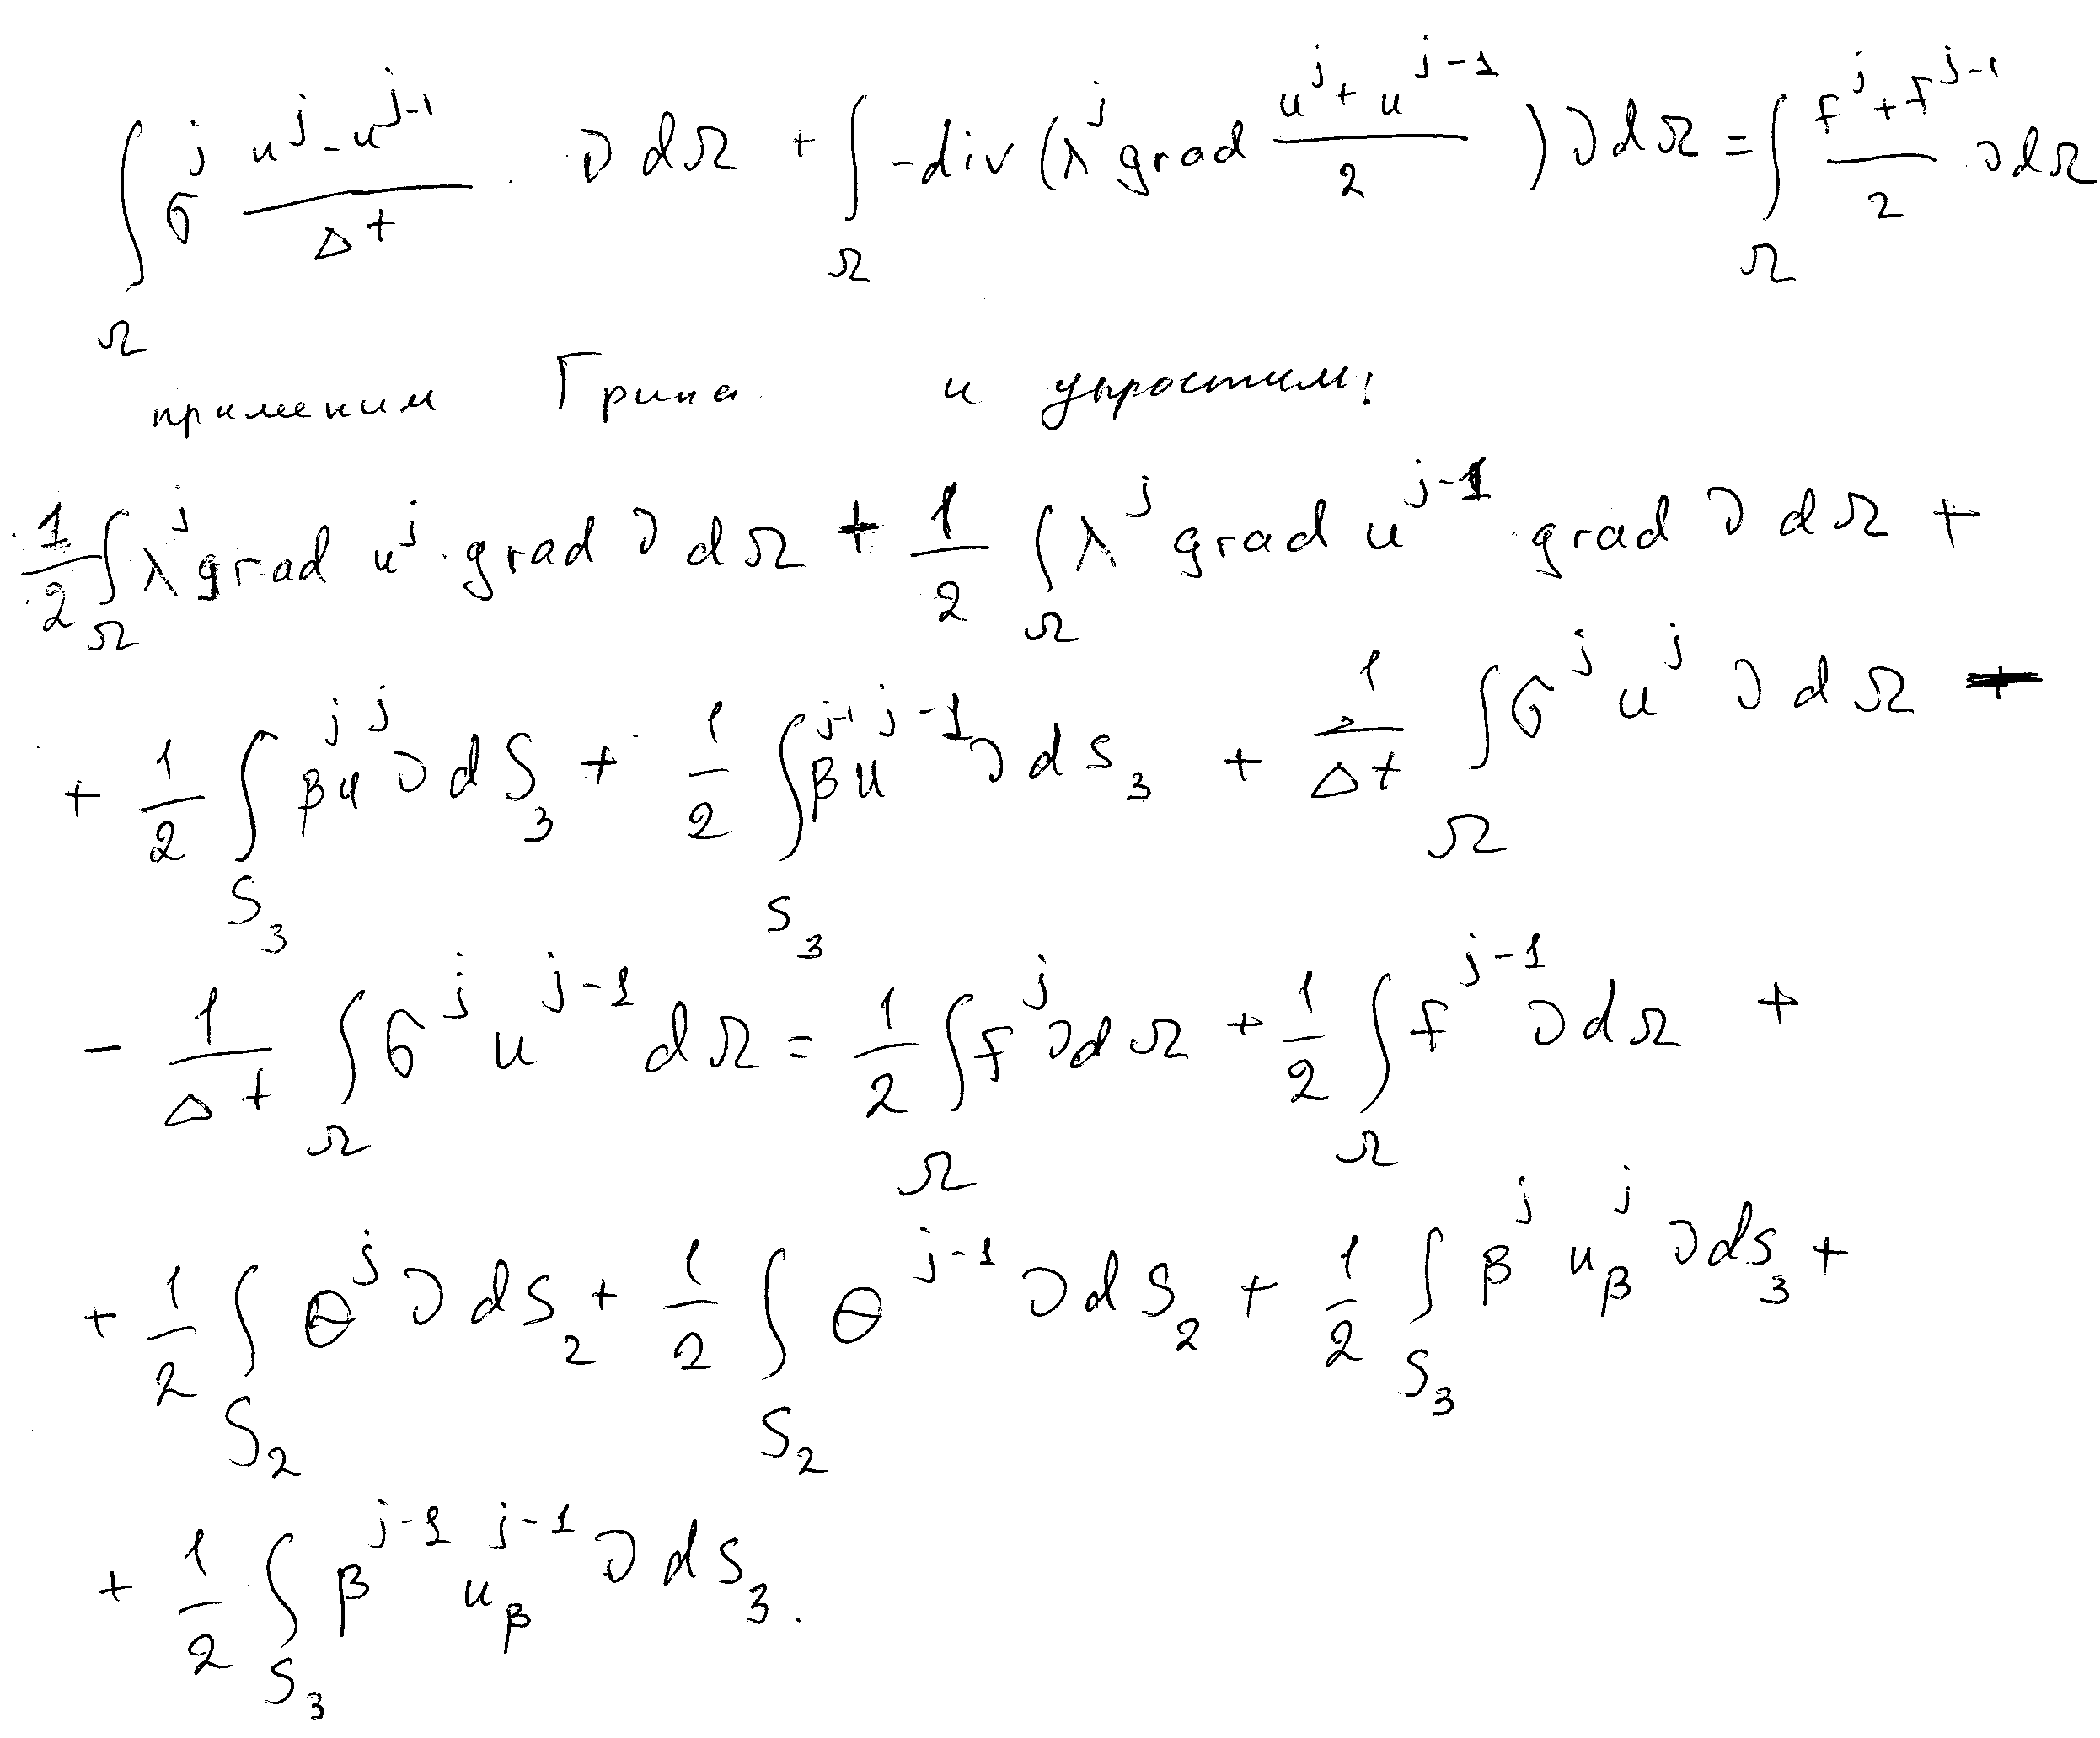 ∫_Ω σ^j (u^j - u^{j-1})/Δt · ϑ dΩ + ∫_Ω -div(λ^j grad (u^j + u^{j-1})/2) ϑ dΩ = ∫_Ω (f^j + f^{j-1})/2 · ϑ dΩ
применим Грина и упростим:
1/2 ∫_Ω λ^j grad u^j · grad ϑ dΩ + 1/2 ∫_Ω λ^j grad u^{j-1} · grad ϑ dΩ +
+ 1/2 ∫_{S_3} β^j u^j ϑ dS_3 + 1/2 ∫_{S_3} β^{j-1} u^{j-1} ϑ dS_3 + 1/Δt ∫_Ω σ^j u^j ϑ dΩ -
- 1/Δt ∫_Ω σ^j u^{j-1} dΩ = 1/2 ∫_Ω f^j ϑ dΩ + 1/2 ∫_Ω f^{j-1} ϑ dΩ +
+ 1/2 ∫_{S_2} θ^j ϑ dS_2 + 1/2 ∫_{S_2} θ^{j-1} ϑ dS_2 + 1/2 ∫_{S_3} β^j u_β^j ϑ dS_3 +
+ 1/2 ∫_{S_3} β^{j-1} u_β^{j-1} ϑ dS_3.